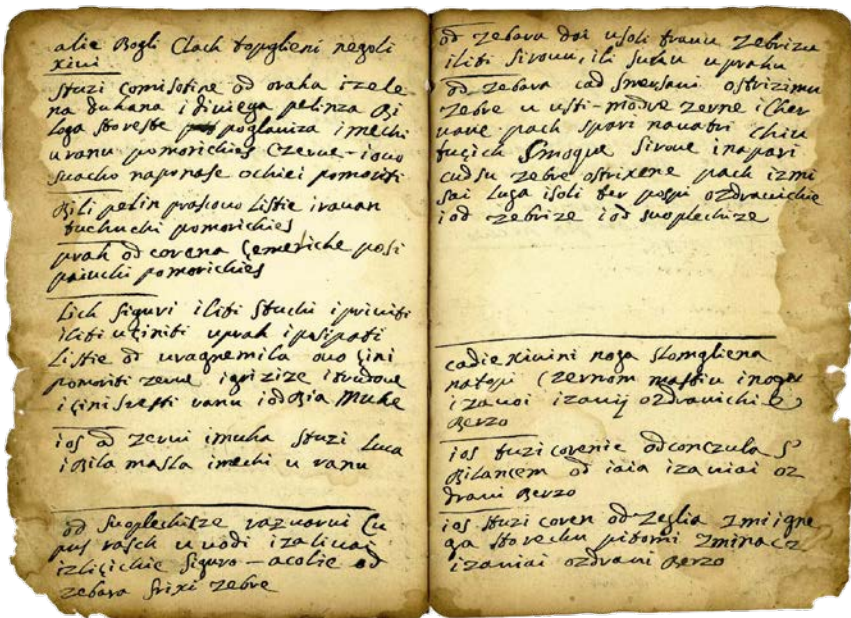 alie Bogli Clach topglieni negoli
xiui
stuzi comisotine od oraha izele
na duhana i diuiega pelinza Bi
loga stoueste poglauiza imechi
uranu pomorichies Czerue - iouo
suacho naponase ochiei pomoriti
Bili pelin prascouo Listie irauan
tuchuchi pomorichies
prah od corena çemeriche posi
paiuchi pomorichies
Lich siguri iliti stuchi ipriuiti
iliti uçiniti uprah iposipati
Listie od uragnemila ouo çini
pomoriti zerue igrizize itrudoue
içini srasti ranu iod Bia Muhe
ios od zerui imuha stuzi Luca
i Bila masla imechi u ranu
od suoplechisze razuarui Cu
pus rasch u uodi izaliuai
izliçichie siguro - acolie od
zebara srixi zebre
od zebara doi usoli trauu zebrizu
iliti sirouu, ili suhu uprahu
od zebara cad smersani ostrizimu
zebre u usti - modre zerne i Cher
uaue pach spari nauatri chiu
tuçich Smoque siroue inapari
cudsu zebre ostrixene pach izmi
sai Luga isoli ter pospi ozdrauichie
iod zebrize iod suoplechize
cadie xiuini noga slomgliena
natopi Czernom mastiu inogu
izauoi izauij ozdrauichie
Berzo
ios tuzi corenie od conczula s
Bilancem od iaia izauiai oz
draui Berzo
ios stuzi coren od zeglia zmiigne
ga storechu pitomi zminacz
izauiai ozdraui Berzo